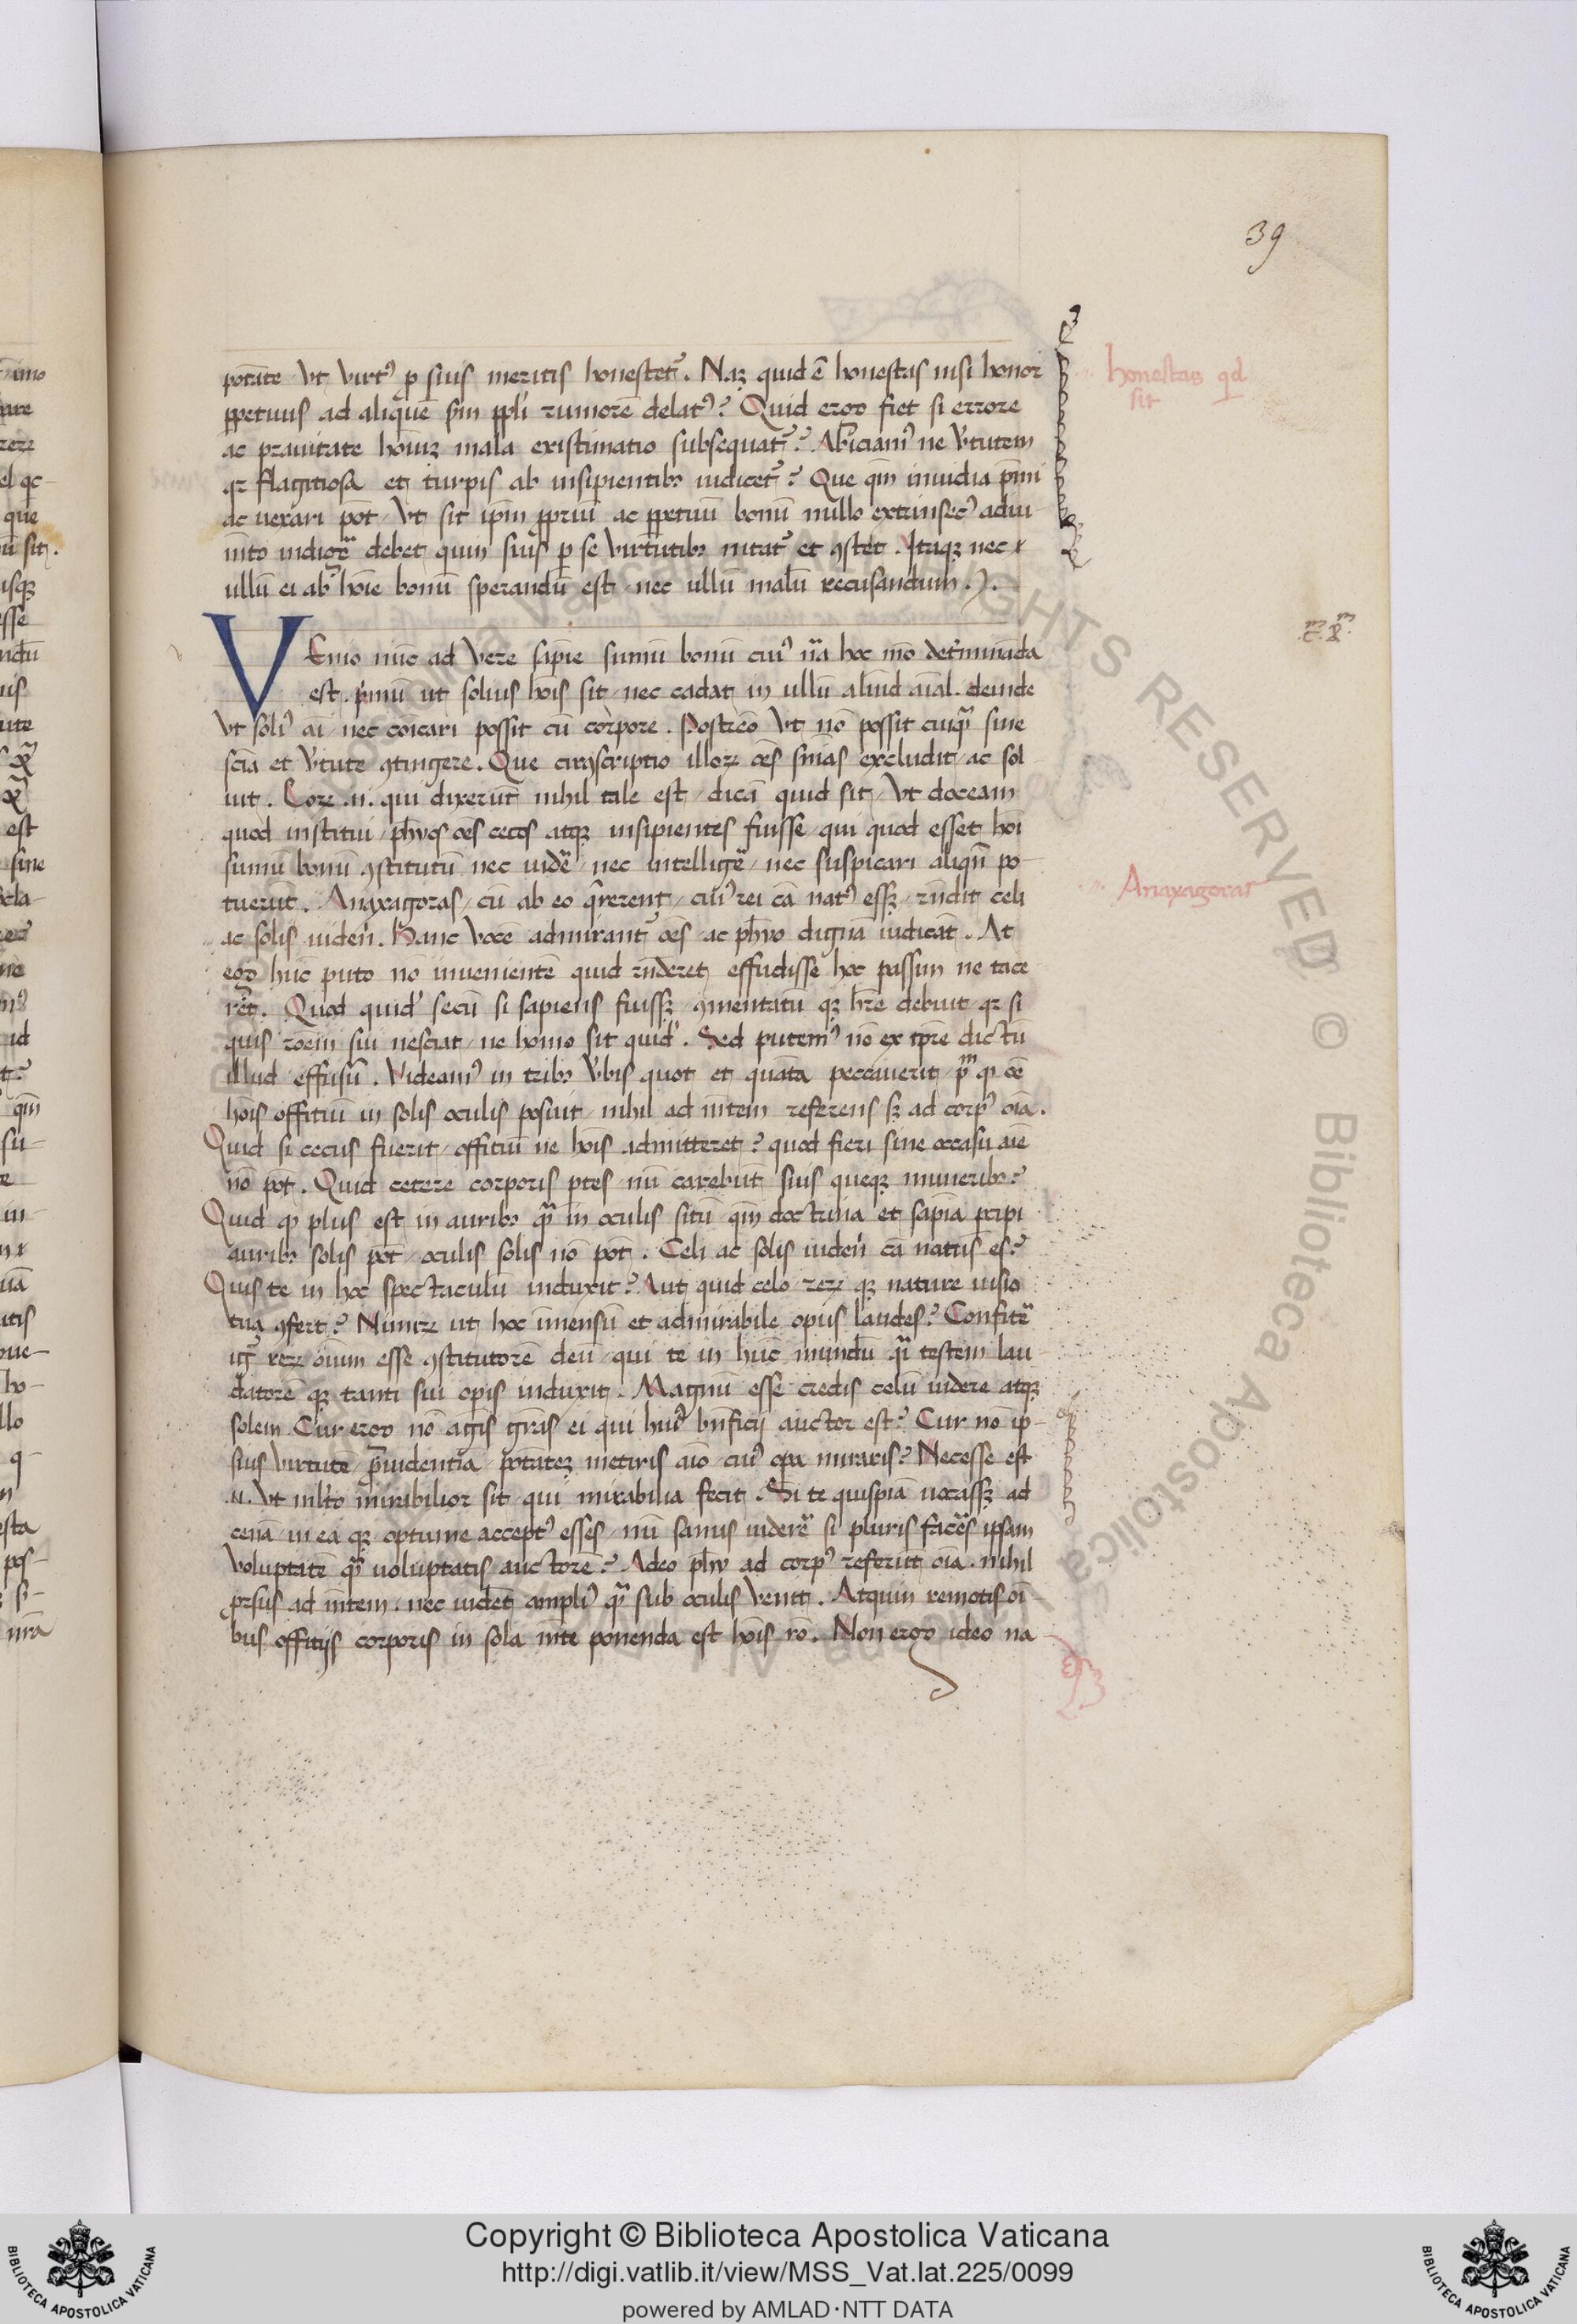 39
potēte vt virtꝰ ꝑ suis meritis honestet᷑. Naꝫ quid ē honestas nisi honor
honestas qd
sit
ꝑpetuus ad aliquē sm̄ ppli rumorē delatꝰ? Quid ergo fiet si errore
ac prauitate homīuꝫ mala existimatio subsequat᷑? Abiciamꝰ ne v̓tutem
qꝛ flagitiosa et turpis ab insipientibꝫ iudicet᷑? Que qm̄ inuidia p̄mi
ac uexari pōt vt sit ip̄m ꝓpriū ac ꝑpetuū bonū nullo extrinsecꝰ adiu
mēto indigē debet quin suis ꝑ se virtutibꝫ nitat᷑ et ꝯstet. Itaqꝫ nec
ullū ei ab hoīe bonū sperandū est nec ullū malū recusandum.
VEnio nūc ad vere sapīe summū bonū cuiꝰ nā hoc mō det̓mināda
.c.x.m
est. p̓mū ut solius hoīs sit nec cadat in ullū aliud aīal. deinde
vt soliꝰ aī nec coīcari possit cū corpore. Postreo vt nō possit cuiqꝫ sine
scīa et v̓tute ꝯtingere. Que circūscriptio illoꝝ oēs sniās excludit ac sol
uit. Eoꝝ .n. qui dixerūt nihil tale est dicā quid sit vt doceam
quod institui ph̄os oēs cecos atqꝫ insipientes fuisse qui quod esset hoī
summū bonū ꝯstitutū nec uidē nec intelligē nec suspicari aliqn̄ po-
tuerūt. Anaxagoras cū ab eo q̄rerent cuiꝰ rei cā natꝰ essꝫ rn̄dit celi
Anaxagoras
ac solis uiden̓. Hanc vocē admirant᷑ oēs ac ph̄o dignā iudicāt. At
ego hūc puto nō inuenientē quid rn̄deret effudisse hoc passim ne tace
ret. Quod quid̓ secū si sapiens fuissꝫ ꝯmentatū qꝫ hr̄e debuit qꝛ si
quis roēm sui nesciat ne homo sit quid̓. Sed putemꝰ nō ex tpr̄e dictū
illud effusū. Videamꝰ in tribꝫ v̓bis quot et quāta peccauerit pͫ qꝫ oē
hoīs offitiū in solis oculis posuit nihil ad mētem referens sꝫ ad corpꝰ oīa.
Quid si cecus fuerit offitiū ne hoīs admitteret? quod fieri sine occasu aīe
nō pōt. Quid cetere corporis ꝑtes nū carebūt suis queqꝫ muneribꝫ?
Quid qꝫ plus est in auribꝫ qꝫ in oculis sitū qm̄ doctrina et sapīa ꝑcipi
auribꝫ solis pōt oculis solis nō pōt. Celi ac solis uiden̓ cā natus es?
Quis te in hoc spectaculū induxit? Aut quid celo reꝝ qꝫ nature uisio
tua ꝯfert? Nimiꝝ ut hoc īmensū et admirabile opus laudes? Confitē
igr̄ reꝝ oīum esse ꝯstitutorē deū qui te in hūc mundū qͣi testem lau
datorē qꝫ tanti sui opis induxit. Magnū esse credis celū uidere atqꝫ
solem Cur ergo nō agis gr̄as ei qui huiꝰ bn̄ficij auctor est? Cur nō ip-
sius virtutē prouidentia potatēꝫ metiris aīo cuiꝰ opa miraris? Necesse est
.n. vt mlto mirabilior sit qui mirabilia fecit. Si te quispiā uocassꝫ ad
cenā in ea qꝫ optime acceptꝰ esses nū sanus uiderē si pluris facēs ipsam
voluptatē qꝫ uoluptatis auctorē? Adeo ph̄i ad corpꝰ referūt oīa nihil
ꝓrsus ad mētem. nec uidēt ampliꝰ qꝫ sub oculis venit. Atquin remotis oī
bus offitijs corporis in sola mēte ponenda est hoīs rō. Non ergo ideo na
Copyright © Biblioteca Apostolica Vaticana
http://digi.vatlib.it/view/MSS_Vat.lat.225/0099
powered by AMLAD·NTT DATA